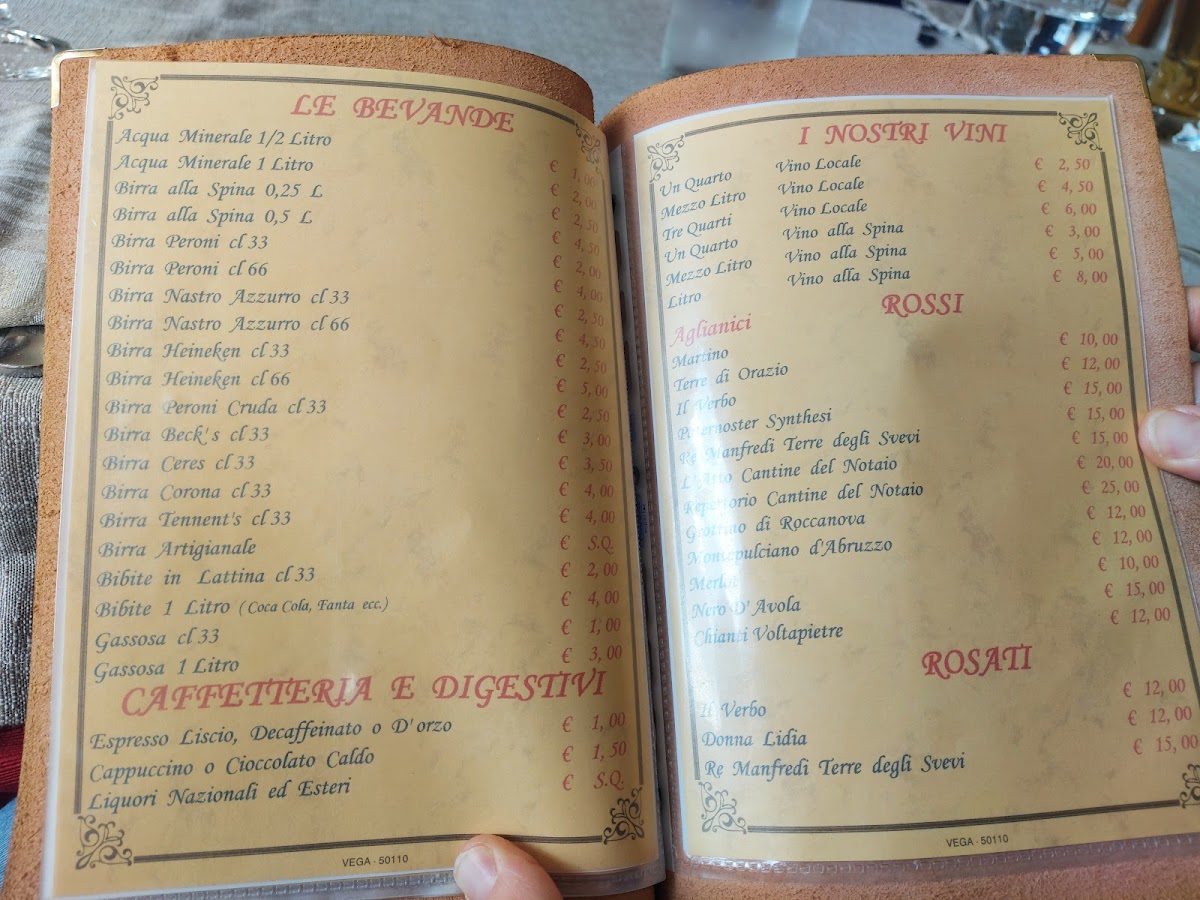 LE BEVANDE
Acqua Minerale 1/2 Litro € 1,00
Acqua Minerale 1 Litro € 2,00
Birra alla Spina 0,25 L € 2,50
Birra alla Spina 0,5 L € 4,50
Birra Peroni cl 33 € 2,00
Birra Peroni cl 66 € 4,00
Birra Nastro Azzurro cl 33 € 2,50
Birra Nastro Azzurro cl 66 € 4,50
Birra Heineken cl 33 € 2,50
Birra Heineken cl 66 € 5,00
Birra Peroni Cruda cl 33 € 2,50
Birra Beck's cl 33 € 3,00
Birra Ceres cl 33 € 3,50
Birra Corona cl 33 € 4,00
Birra Tennent's cl 33 € 4,00
Birra Artigianale € S.Q.
Bibite in Lattina cl 33 € 2,00
Bibite 1 Litro (Coca Cola, Fanta ecc.) € 4,00
Gassosa cl 33 € 1,00
Gassosa 1 Litro € 3,00
CAFFETTERIA E DIGESTIVI
Espresso Liscio, Decaffeinato o D'orzo € 1,00
Cappuccino o Cioccolato Caldo € 1,50
Liquori Nazionali ed Esteri € S.Q.
VEGA - 50110
I NOSTRI VINI
Un Quarto Vino Locale € 2,50
Mezzo Litro Vino Locale € 4,50
Tre Quarti Vino Locale € 6,00
Un Quarto Vino alla Spina € 3,00
Mezzo Litro Vino alla Spina € 5,00
Litro Vino alla Spina € 8,00
ROSSI
Aglianici
Martino € 10,00
Terre di Orazio € 12,00
Il Verbo € 15,00
Paternoster Synthesi € 15,00
Re Manfredi Terre degli Svevi € 15,00
L'Atto Cantine del Notaio € 20,00
Repertorio Cantine del Notaio € 25,00
Grottino di Roccanova € 12,00
Montepulciano d'Abruzzo € 12,00
Merlot € 10,00
Nero D'Avola € 15,00
Chianti Voltapietre € 12,00
ROSATI
Il Verbo € 12,00
Donna Lidia € 12,00
Re Manfredi Terre degli Svevi € 15,00
VEGA - 50110